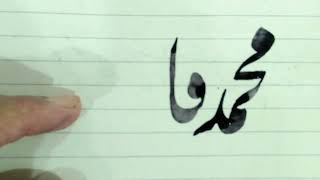 محمد فا